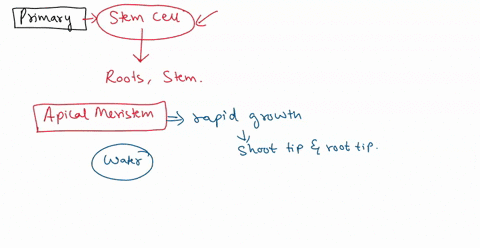 Primary Stem cell
Roots, Stem.
Apical Meristem rapid growth
Shoot tip & root tip.
Water